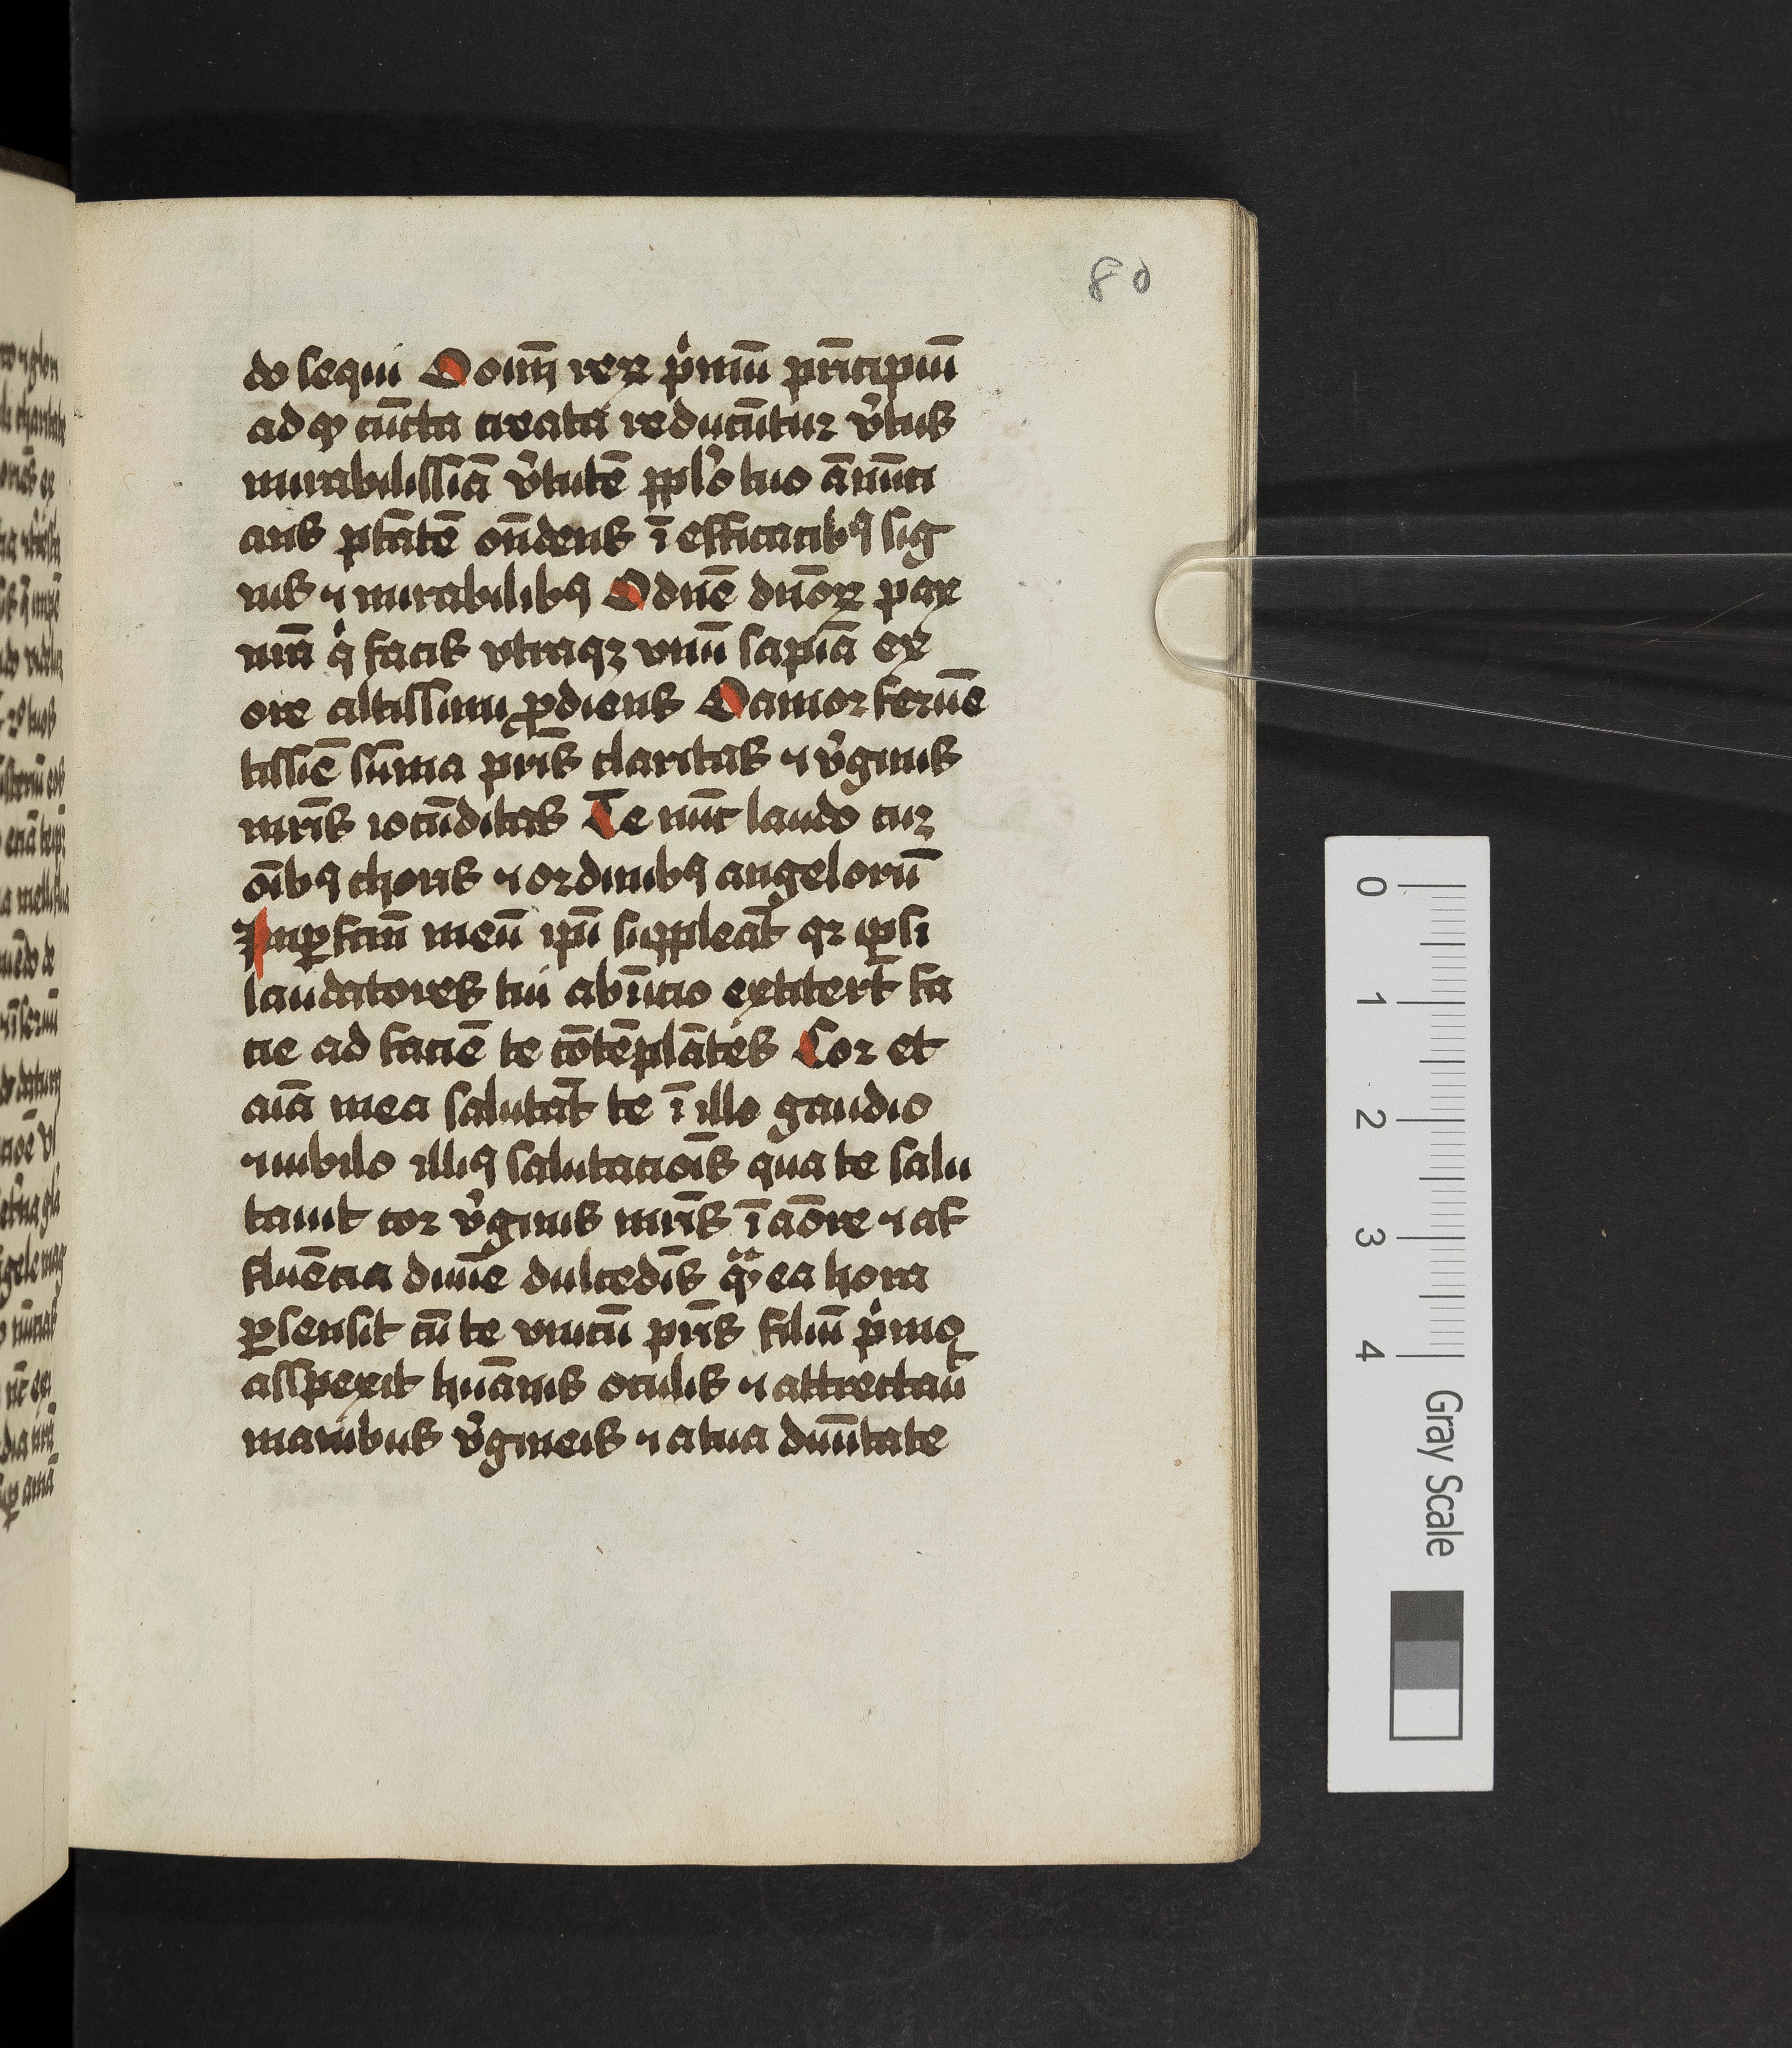 80
do sequi O oīm̄ rerꝝ pͥmū prīcipiū
ad qd cūcta creata reducūtur v̾tus
mirabilissīā v̾tutē pplo tuo ānūci
ans ptātē oñdens ī efficacibꝯ sig
nis ⁊ mirabilibꝯ O dn̄e dn̄oꝝ pax
nr̄a qͥ facis vtraqꝫ vnū sapīa ex
ore altissimi ꝓdiens O amor feruē
tissīe sūma pr̄is claritas ⁊ v̾ginis
mr̄is iocūditas Te nūc laudo cuꝫ
oībꝯ choris ⁊ ordinibꝯ angelorū
Inꝑfcm̄ meū ip̄i suppleāt qꝛ ipsi
laudatores tui ab īicio extitert̄ fa
cie ad faciē te cōtēplātes Cor et
aīa mea salutāt te ī illo gaudio
⁊ iubilo illiꝯ salutacōis qua te salu
tauit cor v̾ginis mr̄is ī amōre ⁊ af
fluēcia diuīe dulcedīs qᷓ ea hora
ꝑsensit cū te vnicū pr̄is filiū pͥmo
asspexit hūanis oculis ⁊ attrectauit
manibus v̾gineis ⁊ a tua diuītate
0
1
2
3
4
Gray Scale